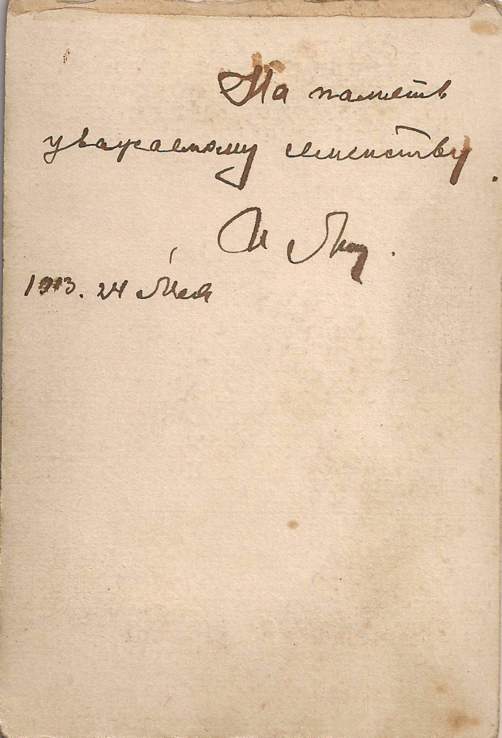 На память
уважаемому семейству
И
1913. 24 Мая